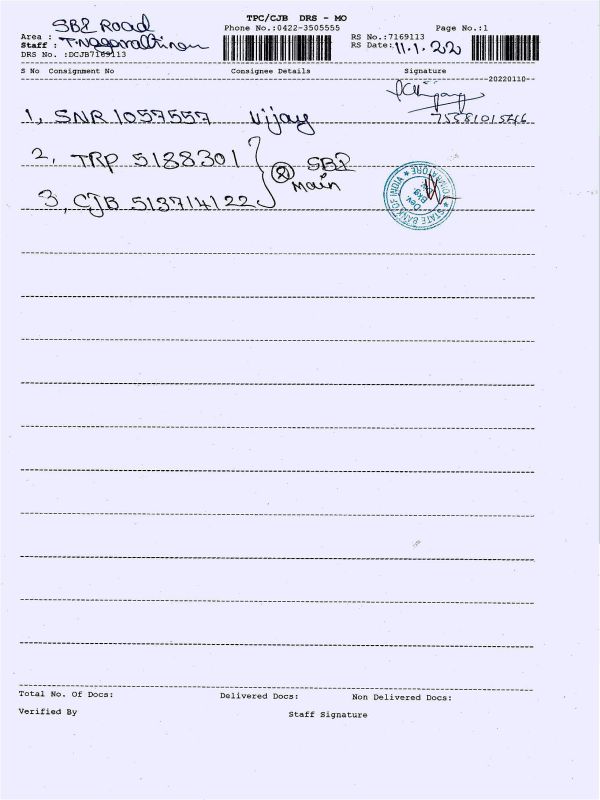 TPC/CJB DRS - MO
Phone No.:0422-3505555
Page No.:1
Area : SBI Road
RS No.:7169113
Staff :
RS Date: 11.1.22
DRS No. :DCJB7169113
S No Consignment No Consignee Details Signature
20220110
1, SNR 1057557 Vijay
2, TRP 5138301
3, CJB 513714122
(2) SBI
main
STATE BANK OF INDIA
COIMBATORE
Total No. Of Docs: Delivered Docs: Non Delivered Docs:
Verified By Staff Signature